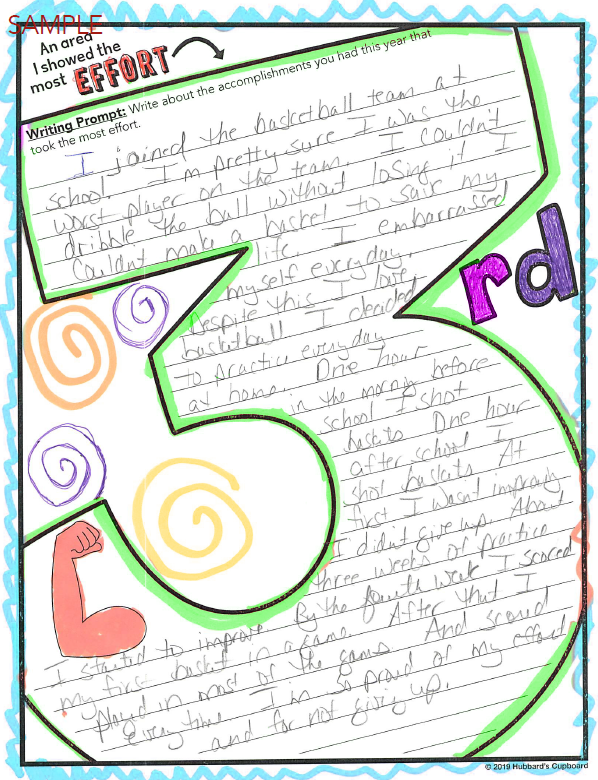 SAMPLE
An area
I showed the
most EFFORT
Writing Prompt: Write about the accomplishments you had this year that
took the most effort.
I joined the basketball team at
school I'm pretty sure I was the
worst player on the team. I couldn't
dribble the ball without losing it I
couldnt make a basket to save my
life I embarrassed
myself everyday.
Despite this I love
basketball I decided
to practice everyday
at home. One hour
in the morning before
school I shot
baskets One hour
after school I
shot baskets At
first I wasnt improving
I didnt give up. About
three weeks of practice
I started to improve By the fourth week I scored
my first basket in a game After that I
played in most of the games And scored
Every time I'm so proud of my effort
and for not giving up.
rd
© 2019 Hubbard's Cupboard